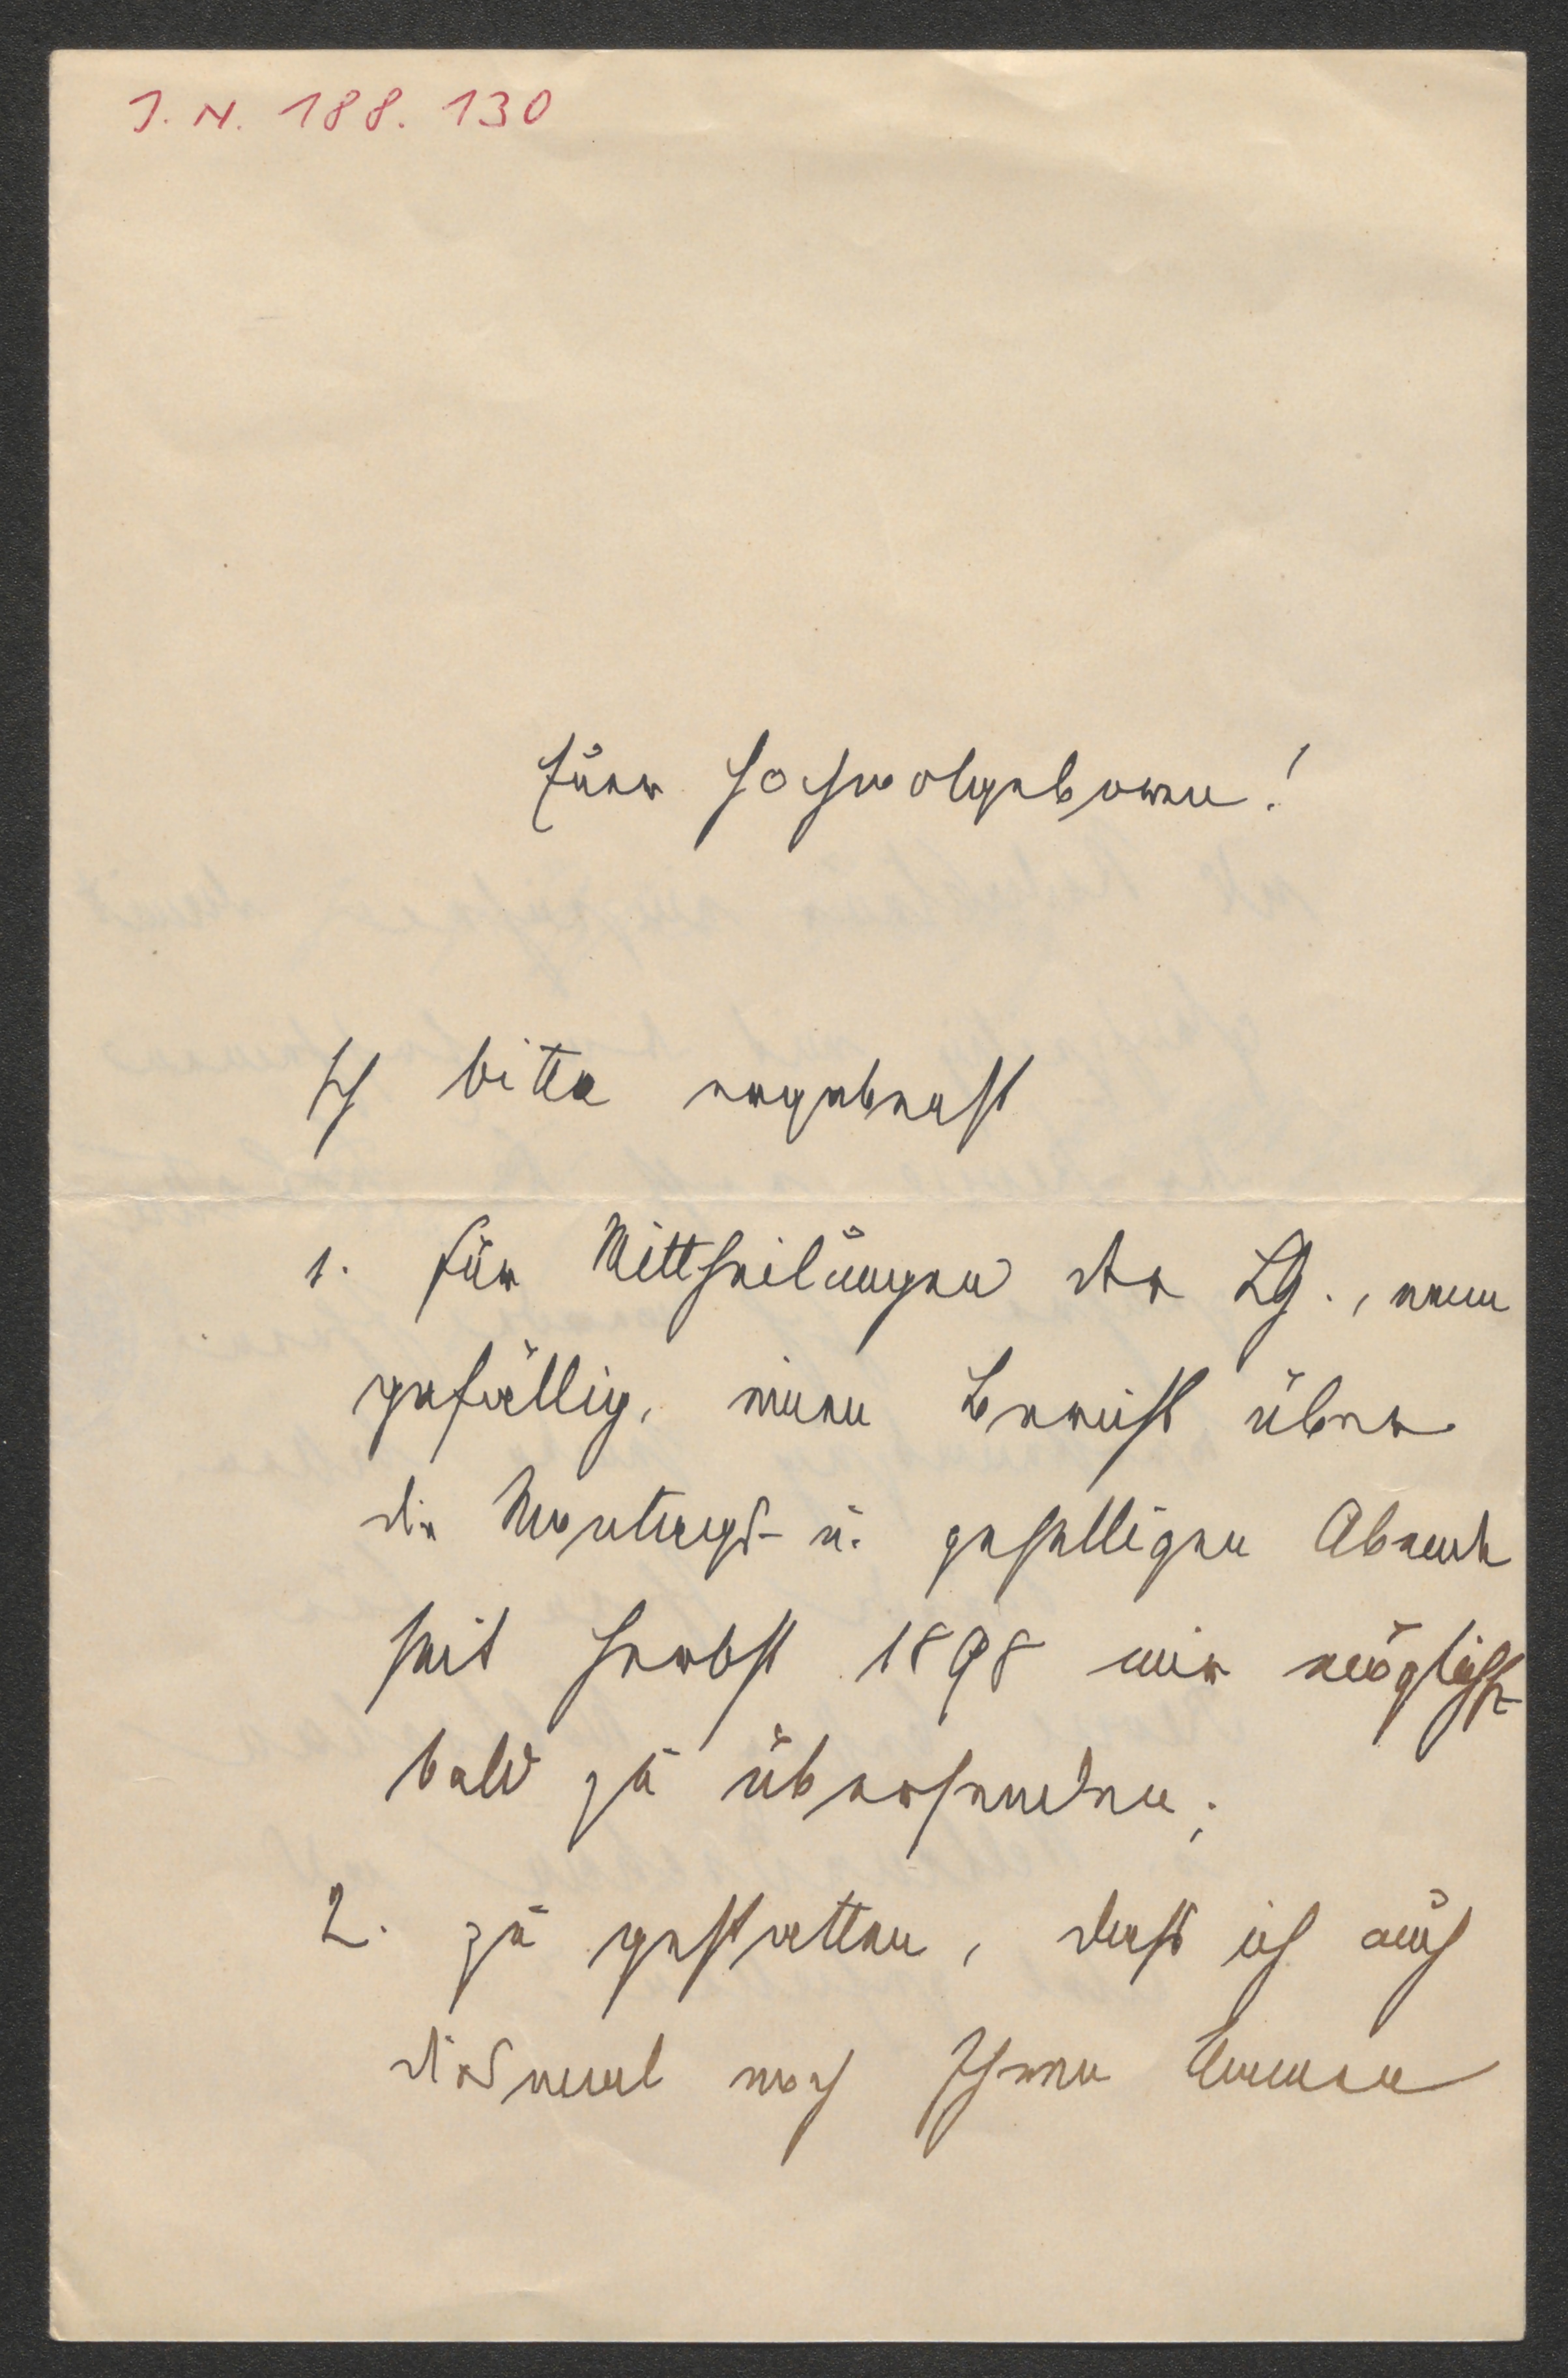 J. N. 188. 130
Euer Hochwolgeboren!
Ich bitte ergebenst
1. für Mittheilungen der LG., wenn
gefällig, einen Bericht über
die Vortrags- u. geselligen Abende
seit Herbst 1898 mir möglichst
bald zu übersenden;
2. zu gestatten, dass ich auch
diesmal noch Ihren Namen